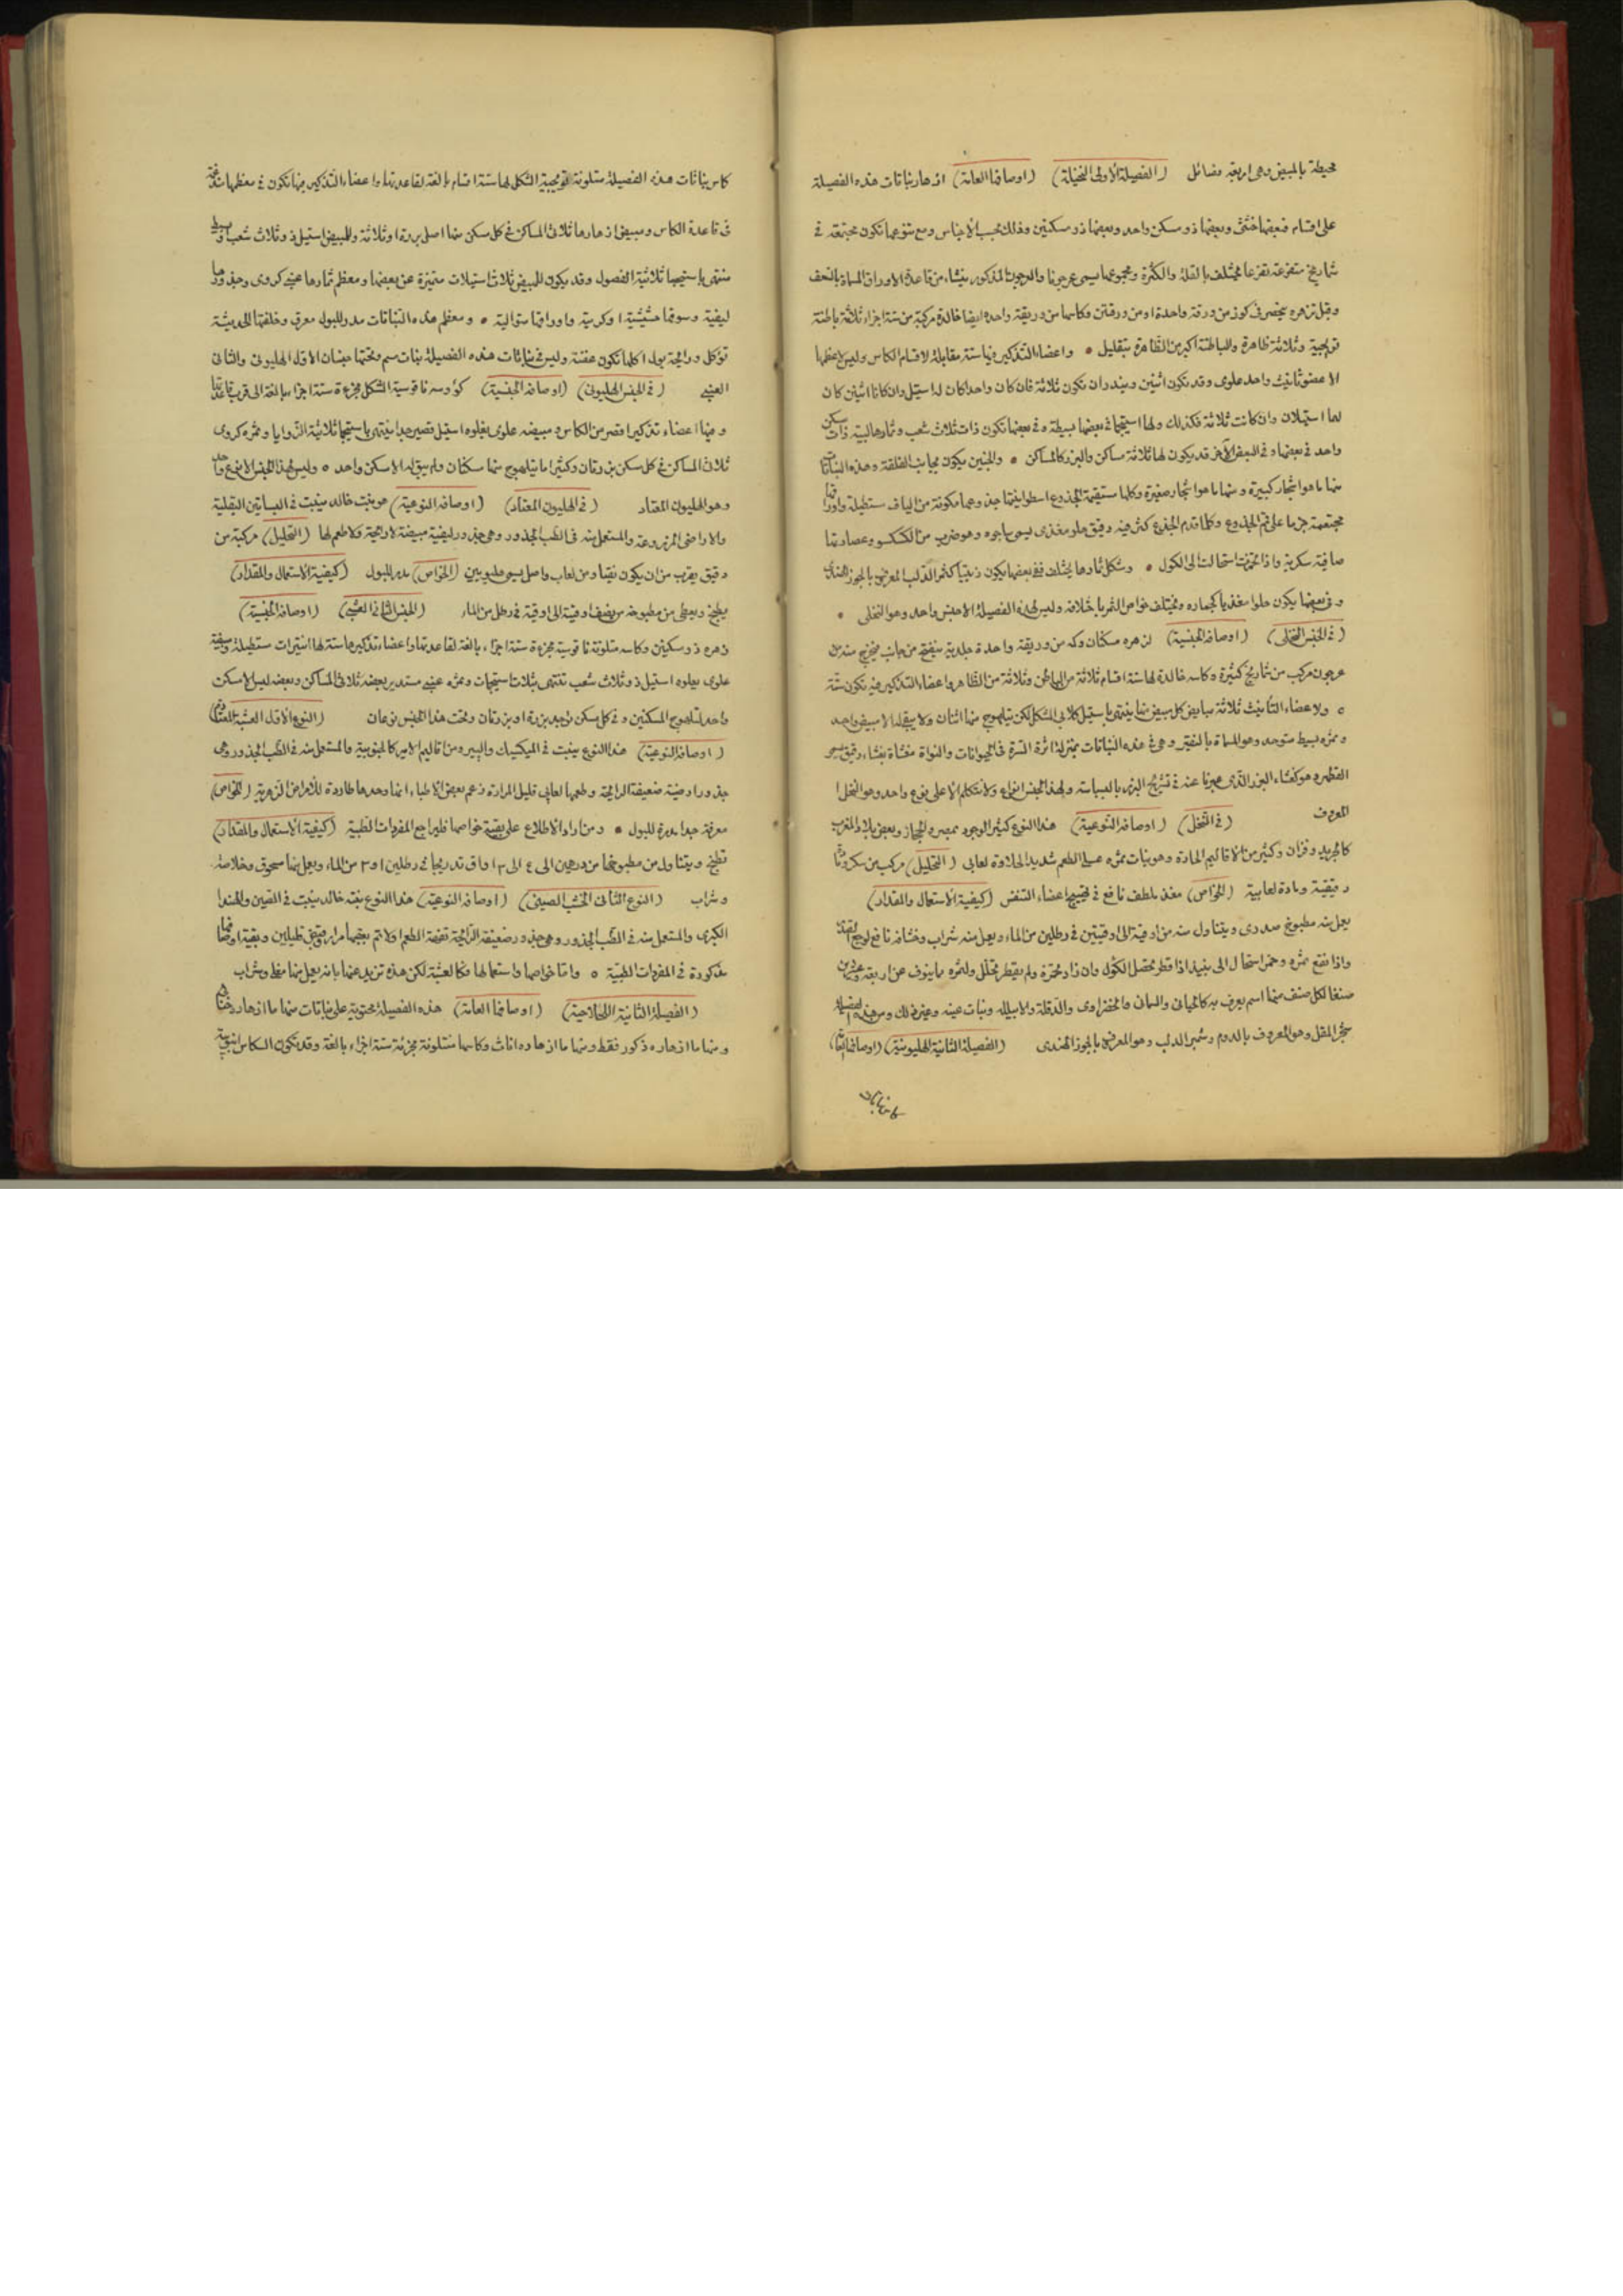 محيطة بالمبيض وهى اربعة فصائل (الفصيلة الأولى النخيلية) (اوصافها العامة) ازهار نباتات هذه الفصيلة
على اقسام فبعضها خنثى وبعضها ذو مسكن واحد وبعضها ذو مسكنين وذلك بحسب الاجناس ومع تنوعها تكون مجتمعة فى
شماريخ متفرعة تفرعا مختلف بالقلة والكثرة ومجموعها يسمى عرجونا والعرجون المذكور ينشاء من قاعدة الاوراق المسماة بالسعف
وقبل تزهره ينحصر فى كوز من ورقة واحدة او من ورقتين وكاسها من وريقة واحدة ايضا خالدة مركبة من ستة اجزاء ثلاثة باطنة
تويجية وثلاثة ظاهرة والباطنة اكبر من الظاهرة بقليل • واعضاء التذكير فيها ستة مقابلة لاقسام الكاس وليس لاعظمها
الا عضو تأنيث واحد علوى وقد تكون اثنين ويندر ان تكون ثلاثة فان كان واحدا كان له استيل وان كانا اثنين كان
لهما استيلان وان كانت ثلاثة فكذلك ولها استيجما فى بعضها بسيطة وفى بعضها تكون ذات ثلاث شعب وثمارها لبية ذات مسكن
واحد فى بعضها وفى البعض الآخر قد يكون لها ثلاثة مساكن والبزر كالمساكن • والجنين يكون بجانب الفلقة وهذه النباتات
منها ما هو اشجار كبيرة ومنها ما هو اشجار صغيرة وكلها مستقيمة الجذوع اسطوانيتها جذوعها مكونة من الياف مستطيلة واوراقها
مجتمعة حزما على قمم الجذوع وكلما تقدم الجذع كثر فيه دقيق حلو مغذى يسمى ساجوه وهو ضرب من الكسكسو وعصارتها
صافية سكرية واذا تخمرت استحالت الى الكول • وشكل ثمارها يختلف ففى بعضها يكون زيتيا كثمر الدلب المعروف بالجوز الهندى
وفى بعضها يكون حلوا مغذيا كجماره وتختلف خواص الثمر باختلافه وليس لهذه الفصيلة الا جنس واحد وهو النخلى •
(فى الجنس النخلى) (اوصافه الجنسية) لزهره مسكنان وكمه من وريقة واحدة جلدية ينفتح من جانب فيخرج منه
عرجون مركب من شماريخ كثيرة وكاسه خالدة لها ستة اقسام ثلاثة من الباطن وثلاثة من الظاهر واعضاء التذكير فيه تكون ستة
• ولاعضاء التأنيث ثلاثة مبايض كل مبيض منها ينتهى باستيل كلابى الشكل لكن يتلهوج منها اثنان ولا يبقى الا مبيض واحد
وثمره بسيط متوحد وهو المسماة بالنقير وهى فى هذه النباتات بمنزلة اثرة السرة فى الحيوانات والنواة مغشاة بغشاء رقيق يسمى
القطمير وهو كغشاء البزر الذى عبرنا عنه فى تشريح البزر بالبسباسة ولهذا الجنس انواع ولا نتكلم الا على نوع واحد وهو النخل
المعروف (فى النخل) (اوصافه النوعية) هذا النوع كثير الوجود بمصر والحجاز وبعض بلاد المغرب
كالجريد وفزان وكثير من الاقاليم الحارة وهو نبات ثمره عسلى الطعم شديد الحلاوة لعابى (التحليل) مركب من سكر ومادة
دقيقية ومادة لعابية (الخواص) مغذ ملطف نافع فى تهييج اعضاء التنفس (كيفية الاستعمال والمقدار)
يعمل منه مطبوخ صدرى ويتناول منه من اوقية الى اوقيتين فى رطلين من الماء ويعمل منه شراب وخشافه نافع لوجع المعدة
واذا نقع ثمره وخمر استحال الى نبيذ اذا قطر تحصل الكول وان زاد تخمره ولم يقطر تخلل ولثمره ما ينوف عن اربعة وعشرين
صنفا لكل صنف منها اسم يعرف به كالحيانى والسمانى والخضراوى والدقلة والابيلله وبنات عيشه وغير ذلك ومن هذه الفصيلة
شجر المقل وهو المعروف بالدوم وشجر الدلب وهو المعروف بالجوز الهندى (الفصيلة الثانية الهليونية) (اوصافها العامة)
كاس نباتات
كاس نباتات هذه الفصيلة متلونة تويجية الشكل لها ستة اقسام بالغة لقاعدتها واعضاء التذكير فيها تكون فى معظمها مندغمة
فى قاعدة الكاس ومبيض ازهارها ثلاثى المساكن فى كل مسكن منها اصل بزرة او ثلاثة وللمبيض استيل ذو ثلاث شعب او بسيط
منتهى باستيجما ثلاثية الفصوص وقد يكون للمبيض ثلاث استيلات متميزة عن بعضها ومعظم ثمارها عنبى كروى وجذورها
ليفية وسوقها حشيشية او كرمية واوراقها متوالية • ومعظم هذه النباتات مدر للبول معرق وخلفتها الحديثة
تؤكل ورائحة بول اكلها تكون عفنة وليس فى نباتات هذه الفصيلة نبات سم وتحتها جنسان الاول الهليونى والثانى
العشبى (فى الجنس الهليونى) (اوصافه الجنسية) كؤوسه ناقوسية الشكل مجزءة ستة اجزاء بالغة الى قرب قاعدتها
وفيها اعضاء تذكير اقصر من الكاس ومبيضه علوى يعلوه استيل قصير جدا ينتهى باستيجما ثلاثية الزوايا وثمره كروى
ثلاثى المساكن فى كل مسكن بزرتان وكثيرا ما يتلهوج منها مسكنان ولم يبق له الا مسكن واحد • وليس لهذا الجنس الا نوع واحد
وهو الهليون المعتاد (فى الهليون المعتاد) (اوصافه النوعية) هو نبت خالد ينبت فى البساتين البقلية
والاراضى المزروعة والمستعمل منه فى الطب الجذور وهى جذور ليفية مبيضة لا رائحة ولا طعم لها (التحليل) مركبة من
دقيق يقرب من ان يكون نقيا ومن لعاب واصل يسمى هليوبين (الخواص) مدر للبول (كيفية الاستعمال والمقدار)
يطبخ ويعطى من مطبوخه من نصف اوقية الى اوقية فى رطل من الماء (الجنس الثانى العشبى) (اوصافه الجنسية)
زهره ذو مسكنين وكاسه متلونة ناقوسية مجزءة ستة اجزاء بالغة لقاعدتها واعضاء تذكيرها ستة لها انتيرات مستطيلة ومبيضه
علوى يعلوه استيل ذو ثلاث شعب تنتهى بثلاث استيجمات وثمره عنبى مستدير بعضه ثلاثى المساكن وبعضه ليس له الا مسكن
واحد لتلهوج المسكنين وفى كل مسكن توجد بزرة او بزرتان وتحت هذا الجنس نوعان (النوع الاول العشبة المعتادة)
(اوصافه النوعية) هذا النوع ينبت فى الميكسيك والبيرو ومن اقاليم الامريكا الجنوبية والمستعمل منه فى الطب الجذور وهى
جذور ارضية ضعيفة الرائحة وطعمها لعابى قليل المرارة زعم بعض الاطباء انها وحدها طاردة للامراض الزهرية (الخواص)
معرقة جدا مدرة للبول • ومن اراد الاطلاع على بقية خواصها فليراجع المفردات الطبية (كيفية الاستعمال والمقدار)
تطبخ ويتناول من مطبوخها من درهمين الى ٤ الى ٣ اواق تدريجا فى رطلين او ٣ من الماء ويعمل منها مسحوق وخلاصة
وشراب (النوع الثانى الخشب الصينى) (اوصافه النوعية) هذا النوع نبته خالد ينبت فى الصين والهند
الكبرى والمستعمل منه فى الطب الجذور وهى جذور ضعيفة الرائحة تفهة الطعم اولا ثم يعقبها مرار وقبض قليلين وبقية اوصافها
مذكورة فى المفردات الطبية • واما خواصها واستعمالها فكالعشبة لكن هذه تزيد عنها بانه يعمل منها مغلى وشراب
(الفصيلة الثانية اللحلاحية) (اوصافها العامة) هذه الفصيلة محتوية على نباتات منها ما ازهاره خناث
ومنها ما ازهاره ذكور فقط ومنها ما ازهاره اناث وكاسها متلونة مجزئة ستة اجزاء بالغة وقد تكون الكاس انبوبية